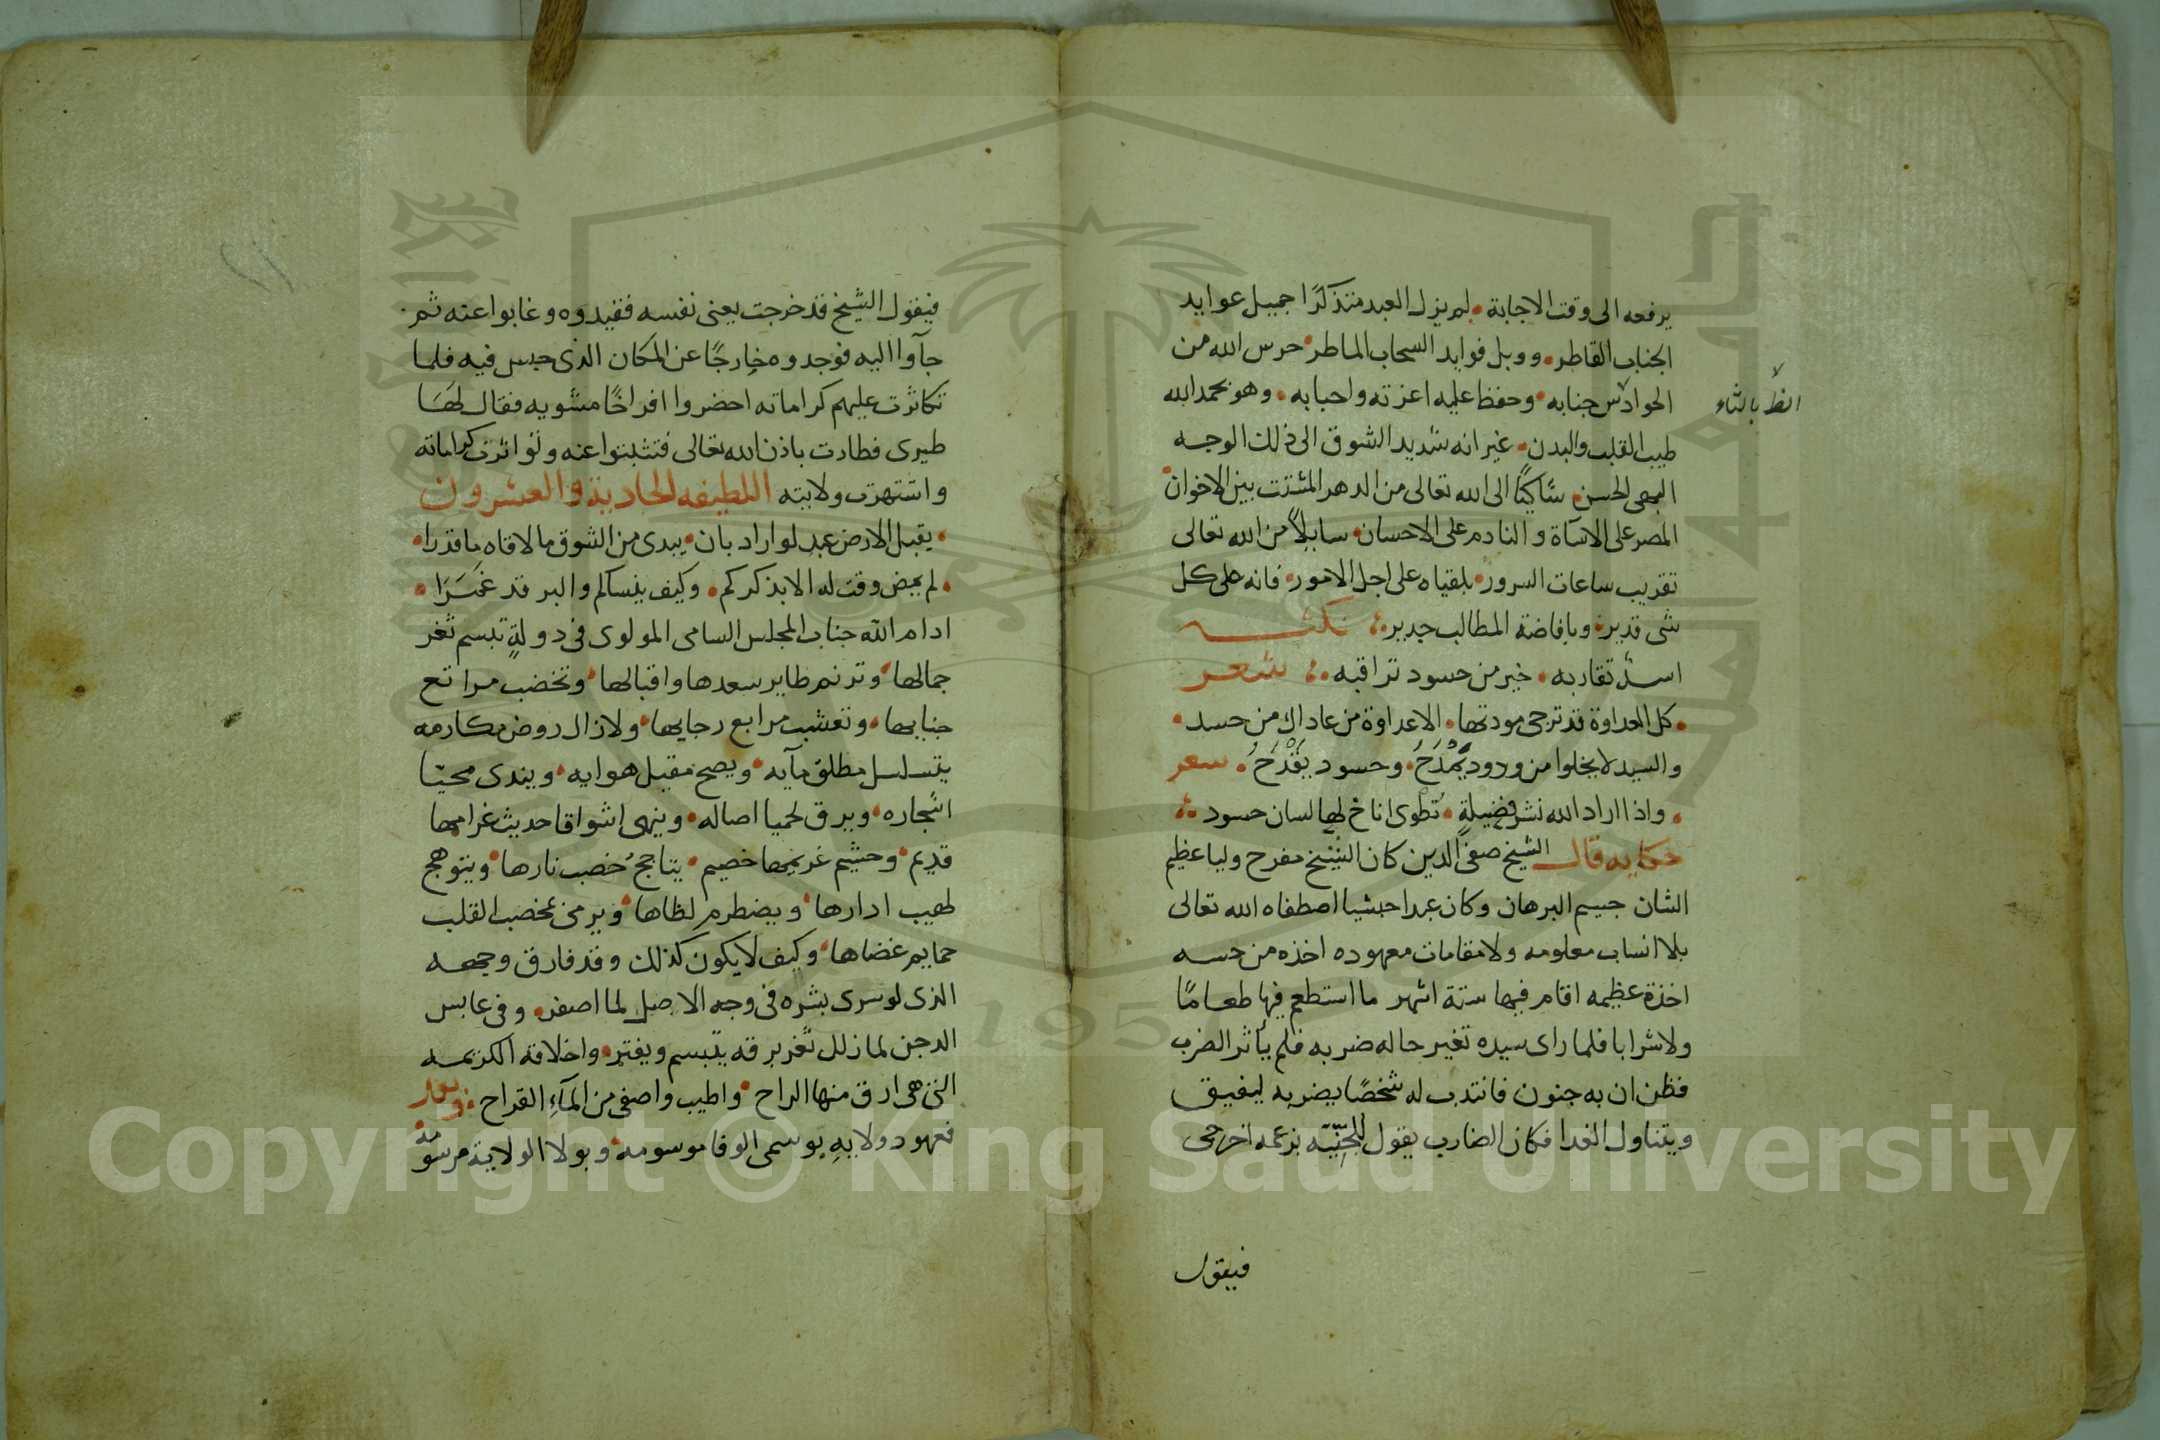 يرفعه الى وقت الاجابة • لم يزل العبد متذكرًا جميل عوايد
الجناب القاطر • ووبل فوايد السحاب الماطر • حرس الله من
الحوادس جنابه • وحفظ عليه اعزته واحبابه • وهو بحمد الله
الظ بالثاء
طيب القلب والبدن • غير انه شديد الشوق الى ذلك الوجه
البهى الحسن • شاكيًا الى الله تعالى من الدهر المشتت بين الاخوان •
المصر على الاسآة والنادم على الاحسان • سايلاً من الله تعالى
تقريب ساعات السرور • بلقياه على اجل الامور • فانه على كل
شى قدير • وبافاضة المطالب جدير ؞ نكتـــه
اسد تقاربه • خير من حسود تراقبه ؞ شعر
• كل العداوة قد ترجى مودتها • الا عداوة من عاداك من حسد •
والسيد لا يخلوا من ودود يَمْدَحُ • وحسود يَقْدَحُ • سعر
• واذا اراد الله نشر فضيلةٍ • تُطوى اتاح لها لسان حسود ؞
حكايه قال الشيخ صفىّ الدين كان الشيخ مفرح وليا عظيم
الشان جسيم البرهان وكان عبدا حبشيا اصطفاه الله تعالى
بلا انساب معلومه ولا مقامات معهوده اخذه من حسه
اخذة عظيمه اقام فيها ستة اشهر ما استطعم فيها طعامًا
ولا شرابا فلما راى سيده تغير حاله ضربه فلم يأثر الضرب
فظن ان به جنون فانتدب له شخصًا يضربه ليفيق
ويتناول الغدا فكان الضارب يقول للجِنّيّه بزعمه اخرجى
فيقول
فيقول الشيخ قد خرجت يعنى نفسه فقيدوه وغابوا عنه ثم
جآوا اليه فوجدوه خارجًا عن المكان الذى حبس فيه فلما
تكاثرت عليهم كراماته احضروا افراخًا مشويه فقال لهَا
طيرى فطارت باذن الله تعالى فتثبتوا عنه وتواترت كراماته
واشتهرت ولايته اللطيفه الحادية والعشرون
• يقبل الارض عبد لو اراد بان • يبدى من الشوق ما لاقاه ما قدرا •
• لم يمض وقت له الا بذكركم • وكيف ينساكم والبر قد غَمَرَا •
ادام الله جناب المجلس السامى المولوى فى دولةٍ تبسم ثغر
جمالها • وترنم طاير سعدها واقبالها • وتخضب مراتع
جنابها • وتعشب مرابع رجايها • ولا زال روض مكارمه
يتسلسل مطلق مآيه • ويصح مقبل هوايه • ويندى محيّا
انجاره • ويرق لحميا اصاله • وينهى اشواقا حديث غرامها
قديم • وحشيم غريمها خصيم • يتاجج خصب نارها • ويتوهج
لهيب ادارها • ويضطرم لظاها • ويرمى بمخصب القلب
حمايم غضاها • وكيف لا يكون كذلك وقد فارق وجهه
الذى لو سرى بشره فى وجه الاصيل لما اصفر • وفى عابس
الدجن لما زلل ثغر برقه يتبسم ويفتر • واخلاقه الكريمه
التى هى ارق منها الراح • واطيب واصفى من المآءِ القراح ؞
فعهود ولايه بوسمى الوفا موسومه • وبولا الولاية مرسومة